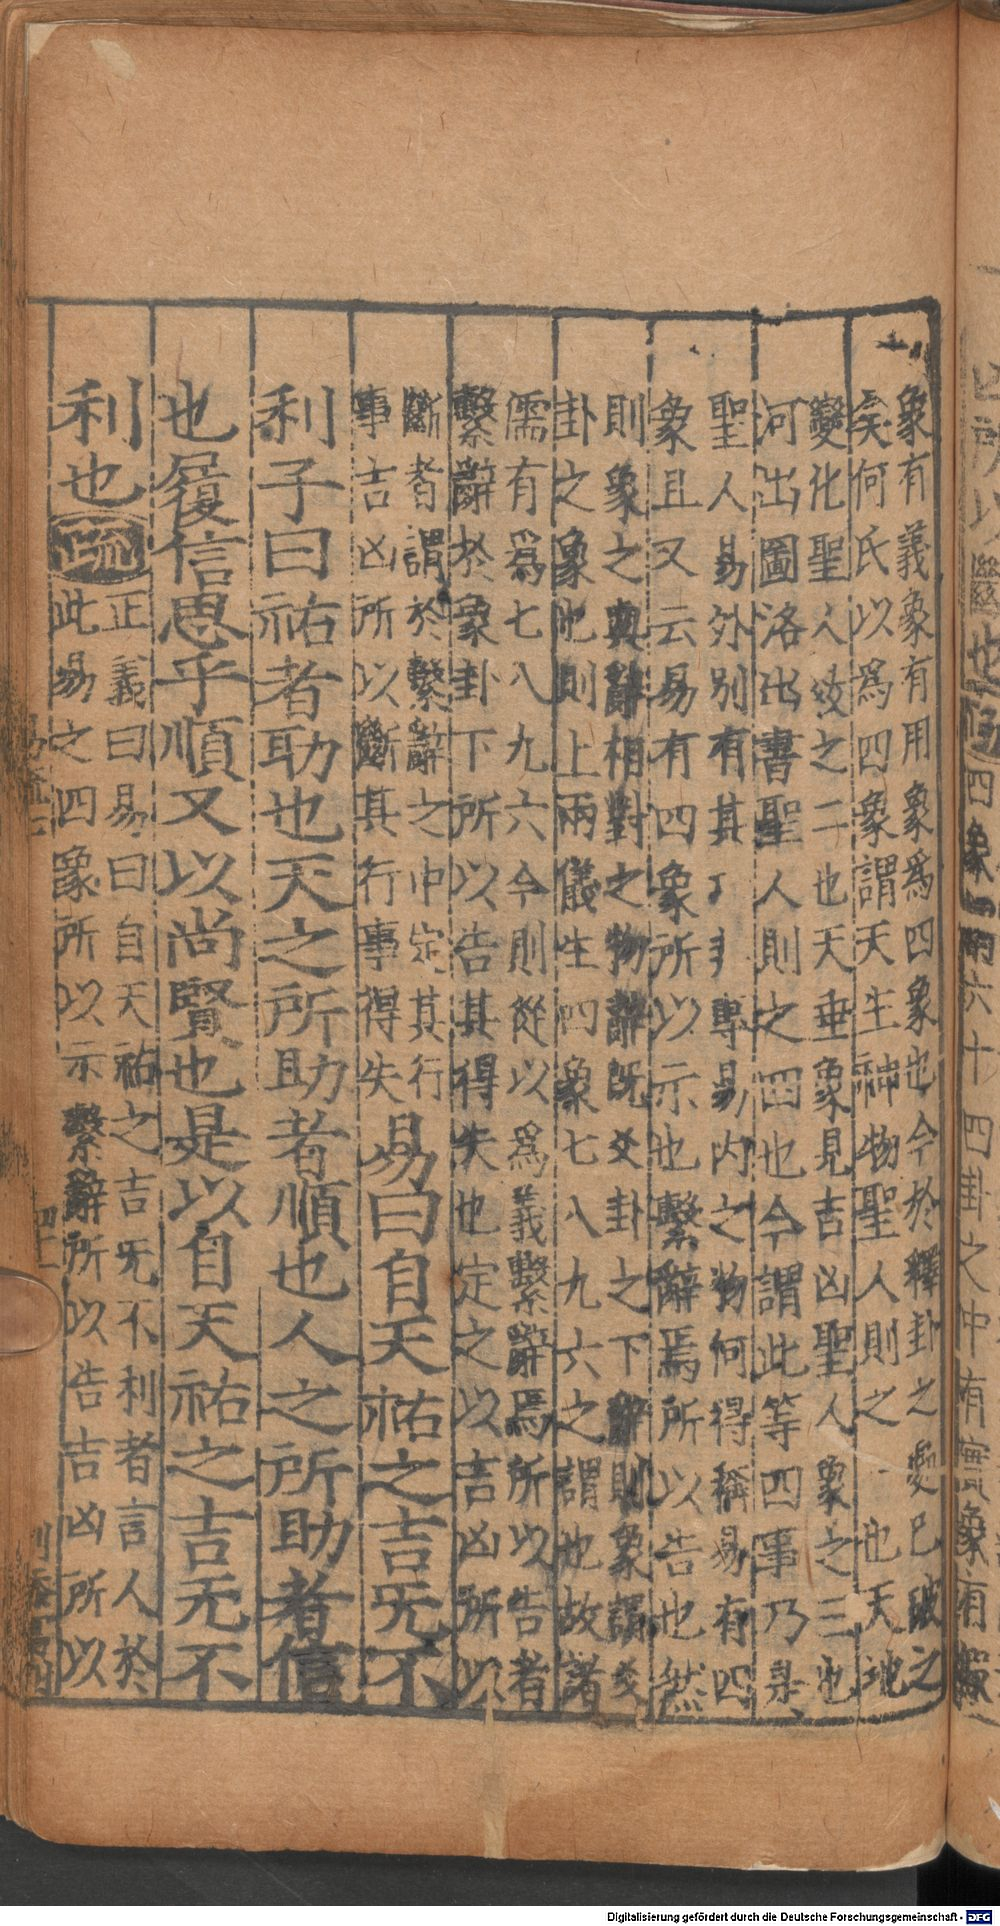 象有義象有用象為四象也今於釋卦之處已破之
矣何氏以為四象謂天生神物聖人則之一也天地
變化聖人效之二也天垂象見吉凶聖人象之三也
河出圖洛出書聖人則之四也今謂此等四事乃是
聖人易外別有其功非專易內之物何得稱易有四
象且又云易有四象所以示也繫辭焉所以告也然
則象之與辭相對之物辭既爻卦之下辭則象謂爻
卦之象也則上兩儀生四象七八九六之謂也故諸
儒有為七八九六今則從以為義繫辭焉所以告者
繫辭於象卦下所以告其得失也定之以吉凶所以
斷者謂於繫辭之中定其行
事吉凶所以斷其行事得失易曰自天祐之吉旡不
利子曰祐者助也天之所助者順也人之所助者信
也履信思乎順又以尚賢也是以自天祐之吉无不
利也疏
正義曰易曰自天祐之吉旡不利者言人於
此易之四象所以示繫辭所以告吉凶所以
Digitalisierung gefördert durch die Deutsche Forschungsgemeinschaft - DFG